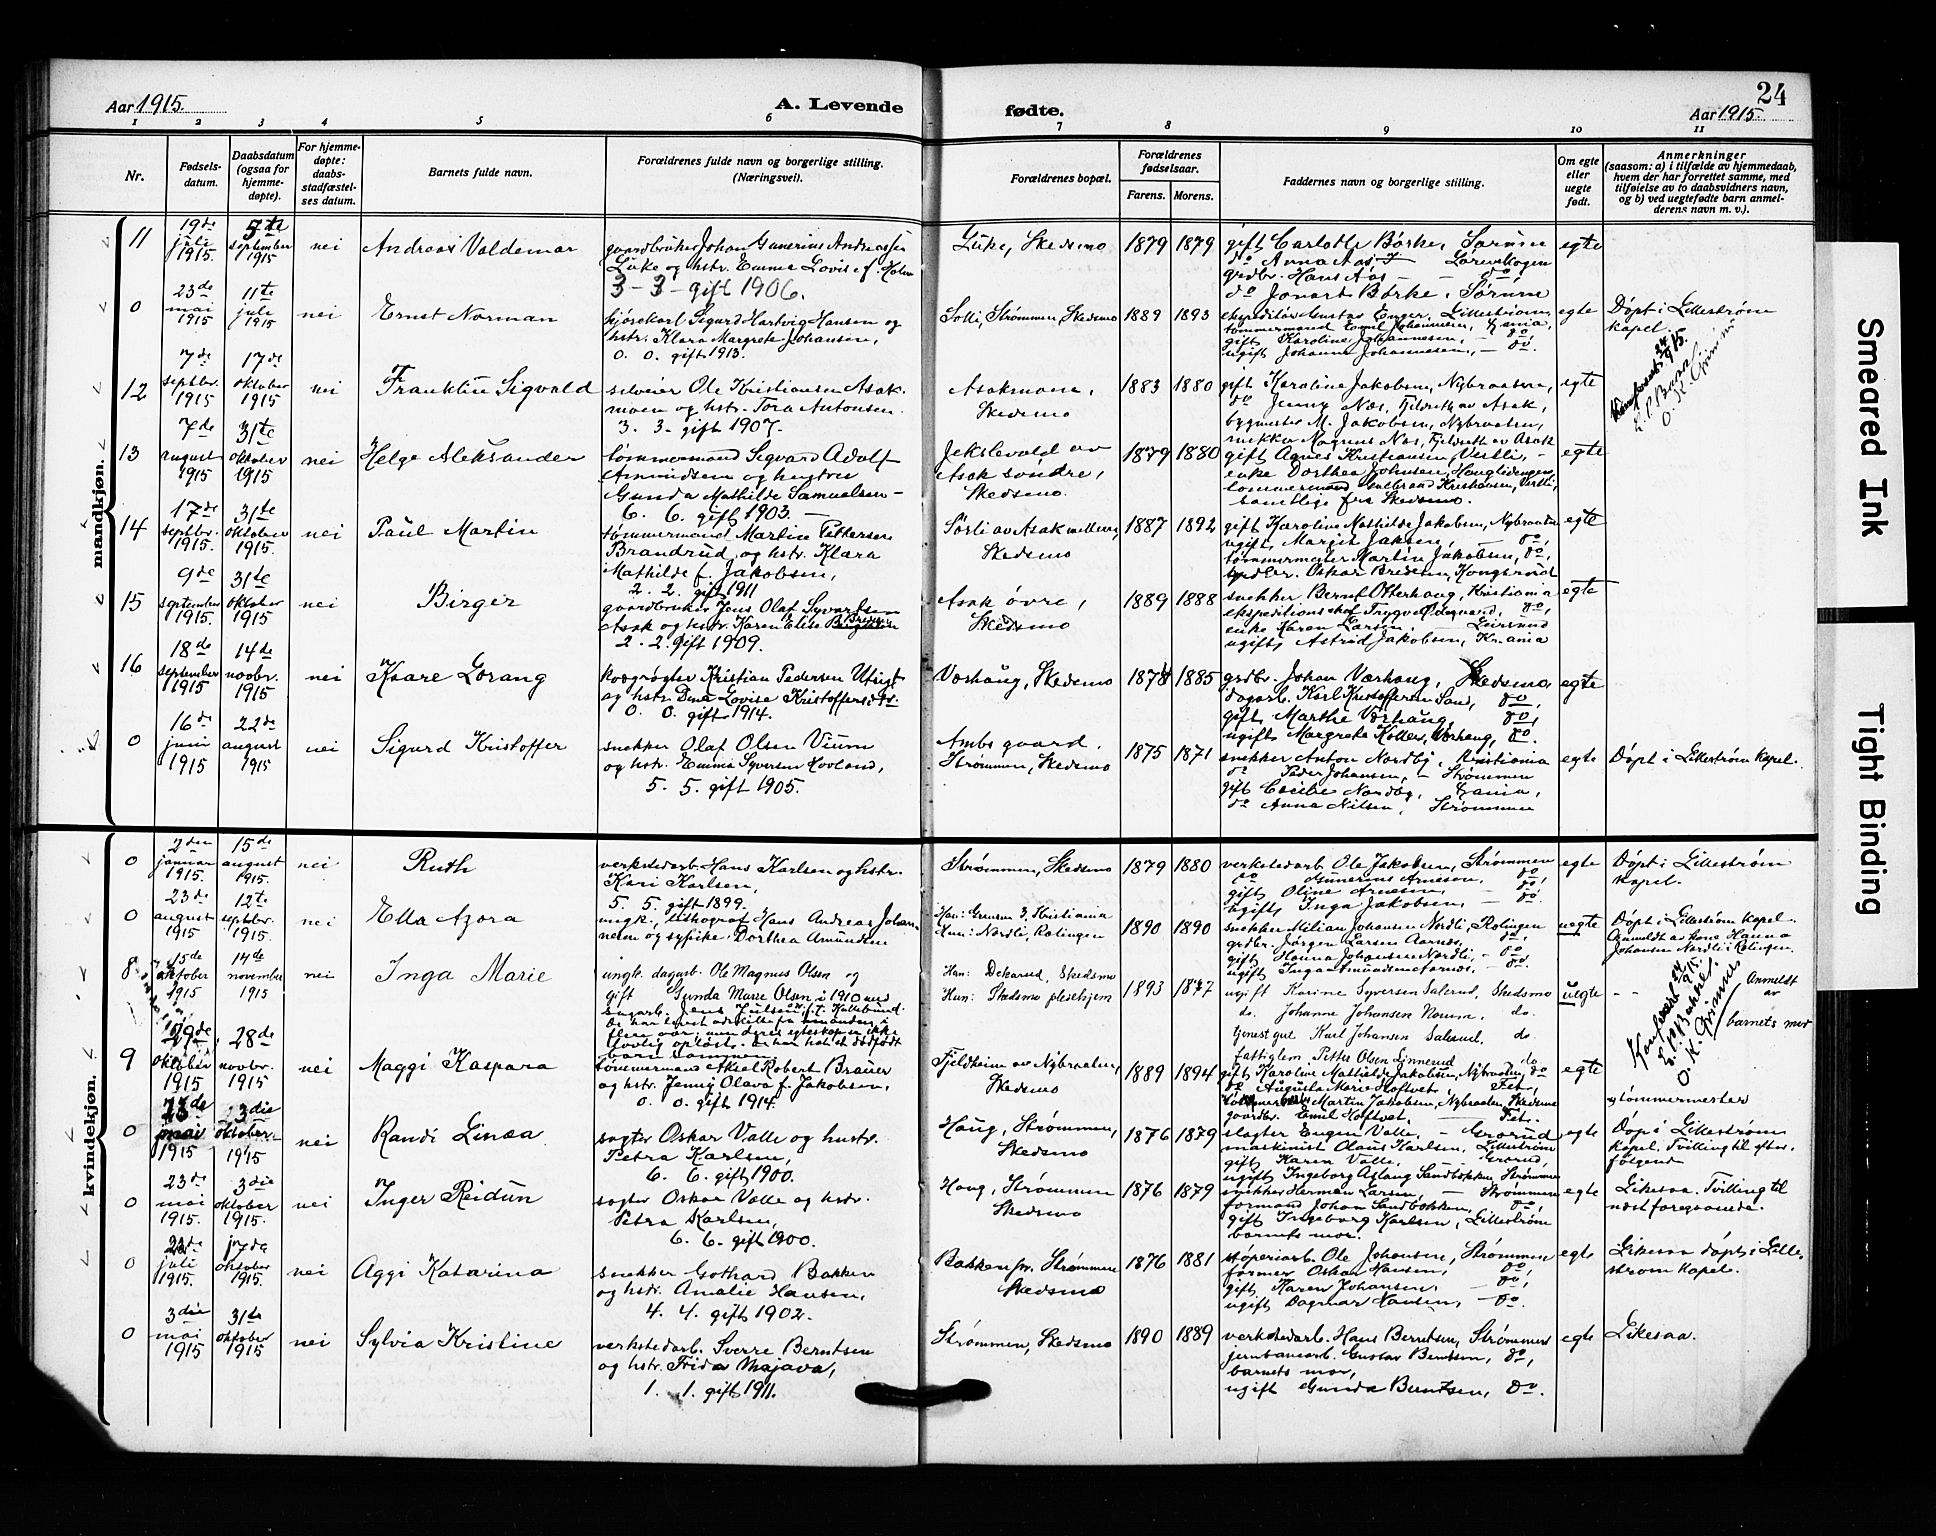 Aar 1915.
A. Levende
fødte.
24
Aar 1915.
1 2 3 4 5 6 7 8 9 10 11
Nr.
Fødsels-
datum.
Daabsdatum
(ogsaa for
hjemme-
døpte).
For hjemme-
døpte:
daabs-
stadfæstel-
ses datum.
Barnets fulde navn.
Forældrenes fulde navn og borgerlige stilling.
(Næringsvei).
Forældrenes bopæl.
Forældrenes
fødselsaar.
Farens. Morens.
Faddernes navn og borgerlige stilling.
Om egte
eller
uegte
født.
Anmerkninger
(saasom: a) i tilfælde av hjemmedaab,
hvem der har forrettet samme, med
tilføielse av to daabsvidners navn,
og b) ved uegtefødte barn anmel-
derens navn m. v.).
mandkjøn.
11
19de
juli
1915.
5te
september
1915
nei
Andreas Valdemar
gaardbruker Johan Gunerius Andreassen
Luke og hstr. Emma Lovise f. Holm
3 - 3 - gift 1906.
Luke, Skedsmo
1879 1879
gift Carlotte Børke, Sørum
do Anna Aas Lørenskogen
grdbr. Hans Aas - - do
do Jonart Børke, Sørum
egte
0
23de
mai
1915
11te
juli
1915
nei
Ernst Norman
kjørekarl Sigurd Hartvig Hansen og
hstr. Klara Margrete Johansen,
0. 0. gift 1913.
Solli, Strømmen, Skedsmo
1889 1893
ekspeditør Gustav Enger, Lillestrøm,
tømmermand Emil Johannesen,
gift Karoline Johannesen, - do
ugift Johanna Johannesen, - do.
egte
Døpt i Lillestrøm
kapel.
12
7de
septbr.
1915
17de
oktober
1915
nei
Franklin Sigvald
Ole Kristiansen Asak-
moen og hstr. Tora Antonsen.
3. 3. gift 1907.
Asakmoen,
Skedsmo
1883 1880
gift Karoline Jakobsen, Nybraaten,
do Jenny Næs, Fjeldseth av Asak,
bygmester M. Jakobsen, Nybraaten,
Magnus Næs, Fjeldseth av Asak
egte
13
7de
august
1915
31te
oktober
1915
nei
Helge Aleksander
tømmermand Sigvard Adolf
Amundsen og hustru
Gunda Mathilde Samuelsen -
6. 6. gift 1903. -
Jekslevold av
Asak søndre,
Skedsmo.
1879 1880
gift Agnes Kristiansen, Vestli, -
enke Dorthea Johnsen, Hauglidengen,
tømmermand Gulbrand Kristiansen, Vestli,
samtlige fra Skedsmo.
egte
14
17de
septbr.
1915.
31te
oktober
1915.
nei
Paul Martin
tømmermand Martin Pettersen
Brandrud og hstr. Klara
Mathilde f. Jakobsen,
2. 2. gift 1911
Sørli av Asak mellem,
Skedsmo
1887 1892
gift Karoline Mathilde Jakobsen, Nybraaten
ugift Margit Jaksen - do,
tømmermester Martin Jakobsen, do,
Oskar Bredesen, Kongsrud
egte
15
9de
september
1915.
31te
oktober
1915
nei
Birger
gaardbruker Jens Olaf Syvertsen
Asak og hstr. Karen Elise
2. 2. gift 1909.
Asak øvre,
Skedsmo
1889 1888
snekker Bernt Otterhaug, Kristiania
ekspeditionschef Trygve Ødegaard, do,
enke Karen Larsen, Leirsund
ugift Astrid Jakobsen, Kr.ania
egte
16
18de
september
1915
14de
novbr.
1915
nei
Kaare Lorang
Kristian Pedersen Utsigt
og hstr. Dina Lovise Kristoffersdtr.
0. 0. gift 1914.
Værhaug, Skedsmo
1878 1885
grdbr. Johan Værhaug, Skedsmo,
dagarb. Karl Kristoffersen Sand, do,
gift Marthe Værhaug, do,
ugift Margrete Koller, Værhaug, do.
egte
0
16de
juni
1915
22de
august
1915
nei
Sigurd Kristoffer
snekker Olaf Olsen Vium
og hstr. Emma Syversen Hovland,
5. 5. gift 1905.
Ambs gaard,
Strømmen, Skedsmo
1875 1871
snekker Anton Nordby, Kristiania
do Peder Johansen, - Strømmen
gift Cecilie Nordby,
do Anna Nilsen, Strømmen
egte
Døpt i Lillestrøm kapel.
kvindekjøn.
0
2den
januar
1915.
15de
august
1915.
nei
Ruth
verkstedarb. Hans Karlsen og hstr.
Kari Karlsen,
5. 5. gift 1899.
Strømmen, Skedsmo
1879 1880
verkstedarb. Ole Jakobsen, Strømmen
do Gunerius Arnesen, do,
gift Oline Arnesen, - do,
ugift Inga Jakobsen, - do.
egte
Døpt i Lillestrøm
kapel.
0
23de
august
1915
12te
septbr.
1915.
nei
Ella Azora
ungk. lithograf Hans Andreas Johan-
nesen og sypike Dorthea Amundsen
Han: Grensen 3, Kristiania
Hun: Nordli, Rælingen
1890 1890
snekker Milian Johansen Nordli, Rælingen
grdbr. Jørgen Larsen Aarnes, do,
gift Hanna Johansen Nordli, - do
ugift Inga Amundsen Aarnes, - do.
uegte
Døpt i Lillestrøm kapel.
Anmeldt av kone Hanna
Johansen Nordli i Rælingen.
8
15de
oktober
1915
14de
november
1915
nei
Inga Marie
ungk. dagarb. Ole Magnus Olsen og
gift Gunda Marie Olsen, i 1910 med
Han: Dekarud, Skedsmo
Hun: Skedsmo pleiehjem
1893 1877
ugift Karine Syversen Salerud, Skedsmo
do. Johanne Johansen Norum, do.
tjenestgut Karl Johansen Salerud, do
fattiglem Petter Olsen Linnerud do
uegte
Anmeldt
av
barnets mor
9
29de
oktober
1915
28de
novbr.
1915
nei
Maggi Kaspara
tømmermand Aksel Robert Brauer
og hstr. Jenny Olava f. Jakobsen,
0. 0. gift 1914.
Fjeldheim av Nybraaten,
Skedsmo
1889 1894
gift Karoline Mathilde Jakobsen, Nybraaten, do
do Augusta Marie Hoftvet, Fet,
Martin Jakobsen, Nybraaten, Skedsmo
gaardbr. Emil Hoftvet, - Fet.
egte
x) tømmermester
0
23de
mai
1915
3die
oktober
1915
nei
Randi Linea
Oskar Valle og hustr.
Petra Karlsen,
6. 6. gift 1900.
Haug, Strømmen,
Skedsmo
1876 1879
slagter Eugen Valle, - Grorud
maskinist Olaus Karlsen, Lillestrøm
gift Karen Valle, Grorud,
ugift Ingeborg Aslaug Sandbakken, Strømmen
egte
Døpt i Lillestrøm
kapel. Tvilling til efter-
følgend
0
23de
mai
1915.
3die
oktober
1915.
nei
Inger Reidun
Oskar Valle og hstr.
Petra Karlsen,
6. 6. gift 1900.
Haug, Strømmen
Skedsmo
1876 1879
snekker Herman Larsen, - Strømmen
formand Johan Sandbakken, do,
gift Ingeborg Karlsen, Lillestrøm
barnets mor.
egte
Likesaa. Tvilling til
næstforegaaende.
0
23de
juli
1915.
17de
oktober
1915.
nei
Aggi Katarina
snekker Gothard Bakken
og hstr. Amalie Hansen,
4. 4. gift 1902.
Bakken pr. Strømmen
Skedsmo
1876 1881
støperiarb. Ole Johansen, Strømmen
former Oskar Hansen, do,
gift Karen Johansen, do,
ugift Dagmar Hansen, - do.
egte
Likesaa døpt i Lille-
strøm kapel.
0
3die
mai
1915
31te
oktober
1915
nei
Sylvia Kristine
verkstedarb. Sverre Berntsen
og hstr. Frida Majava,
1. 1. gift 1911.
Strømmen, Skedsmo
1890 1889
verkstedarb. Hans Berntsen, Strømmen
jernbanearb. Gustav Berntsen, do,
barnets mor,
ugift Gunda Berntsen, do.
egte
Likesaa.
Smeared Ink
Tight Binding